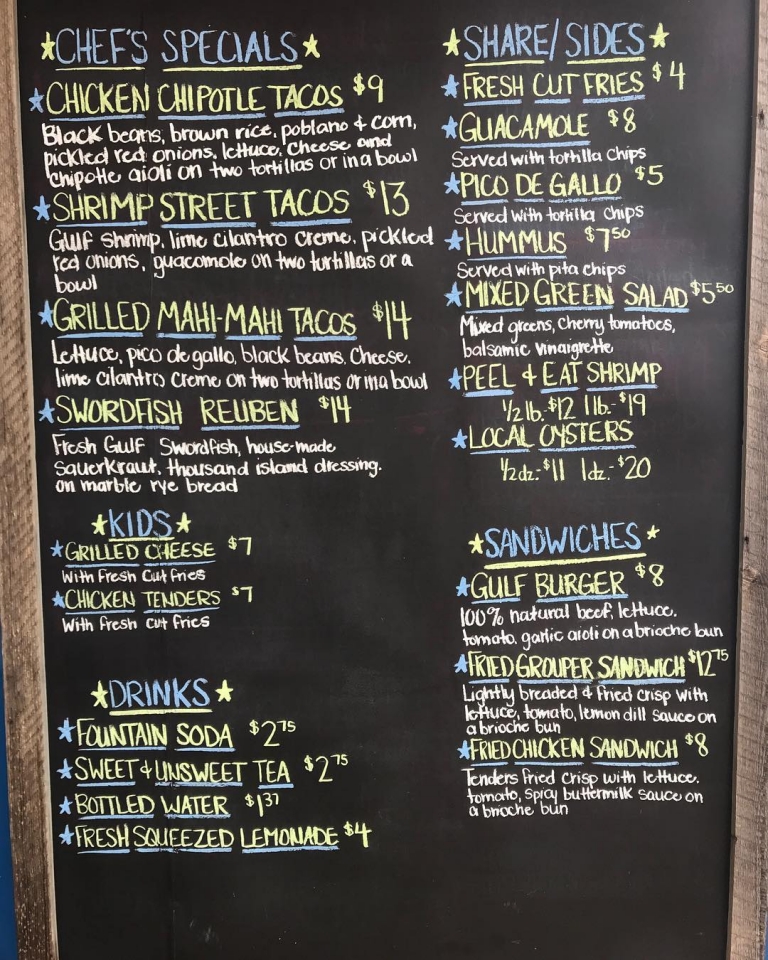 CHEF'S SPECIALS
CHICKEN CHIPOTLE TACOS $9
Black beans, brown rice, poblano & corn,
pickled red onions, lettuce, cheese and
chipotle aioli on two tortillas or in a bowl
SHRIMP STREET TACOS $13
Gulf shrimp, lime cilantro creme, pickled
red onions, guacamole on two tortillas or a
bowl
GRILLED MAHI-MAHI TACOS $14
Lettuce, pico de gallo, black beans, cheese,
lime cilantro creme on two tortillas or in a bowl
SWORDFISH REUBEN $14
Fresh Gulf Swordfish, house-made
Sauerkraut, thousand island dressing.
on marble rye bread
KIDS
GRILLED CHEESE $7
With Fresh Cut fries
CHICKEN TENDERS $7
With fresh cut fries
DRINKS
FOUNTAIN SODA $2.75
SWEET & UNSWEET TEA $2.75
BOTTLED WATER $1.37
FRESH SQUEEZED LEMONADE $4
SHARE/SIDES
FRESH CUT FRIES $4
GUACAMOLE $8
Served with tortilla chips
PICO DE GALLO $5
Served with tortilla chips
HUMMUS $7.50
Served with pita chips
MIXED GREEN SALAD $5.50
Mixed greens, Cherry tomatoes,
balsamic vinaigrette
PEEL & EAT SHRIMP
1/2 lb. $12 1 lb.- $19
LOCAL OYSTERS
1/2 dz.- $11 1dz.- $20
SANDWICHES
GULF BURGER $8
100% natural beef, lettuce,
tomato, garlic aioli on a brioche bun
FRIED GROUPER SANDWICH $12.75
Lightly breaded & fried crisp with
lettuce, tomato, lemon dill sauce on
a brioche bun
FRIED CHICKEN SANDWICH $8
Tenders fried crisp with lettuce,
tomato, spicy buttermilk sauce on
a brioche bun